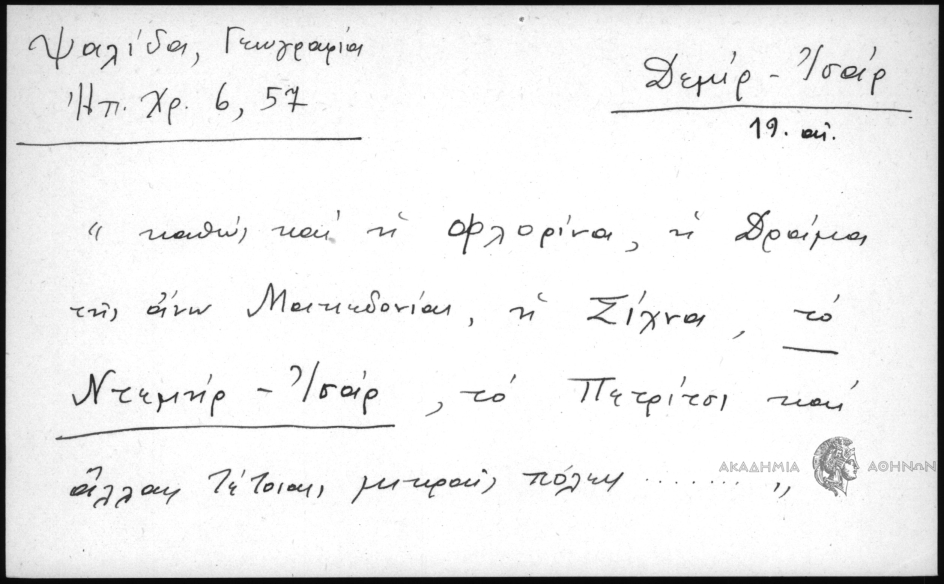 Ψαλίδα, Γεωγραφία
Ἠπ. Χρ. 6, 57
Δεμίρ - Ἰσάρ
19. αἰ.
" καθὼς καὶ ἡ Φλορίνα, ἡ Δράμα
τῆς ἄνω Μακεδονίας, ἡ Ζίχνα, τὸ
Ντεμὴρ - Ἰσάρ, τὸ Πετρίτσι καὶ
ἄλλαι τέτοιαι μικραὶ πόλεις ........ "
ΑΚΑΔΗΜΙΑ ΑΘΗΝΩΝ